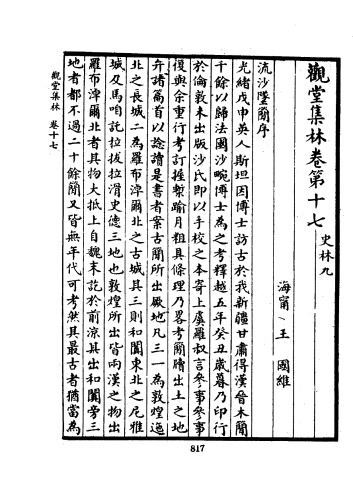 觀堂集林卷第十七
史林九
海甯 王 國維
流沙墜簡序
光緒戊申英人斯坦因博士訪古於我新疆甘肅得漢晉木簡
千餘以歸法國沙畹博士為之考釋越五年癸丑歲暮乃印行
於倫敦未出版沙氏即以手校之本寄上虞羅叔言參事參事
復與余重行考訂握槧踰月粗具條理乃畧考簡牘出土之地
弁諸篇首以諗讀是書者案古簡所出厥地凡三一為敦煌迤
北之長城二為羅布淖爾北之古城其三則和闐東北之尼雅
城及馬咱託拉拔拉滑史德三地也敦煌所出皆兩漢之物出
羅布淖爾北者其物大抵上自魏末訖於前涼其出和闐旁三
地者都不過二十餘簡又皆無年代可考然其最古者猶當為
觀堂集林 卷十七
817